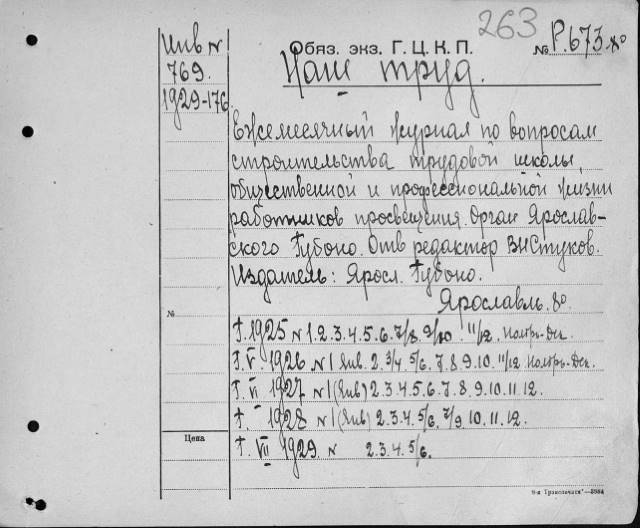 263
Инв №
769.
1929-176
Обяз. экз. Г. Ц. К. П.
№ Р.673 8°
Наш труд.
Ежемесячный журнал по вопросам
строительства трудовой школы,
общественной и профессиональной жизни
работников просвещения. Орган Ярослав-
ского Губоно. Отв редактор В.Н Стуков.
Издатель: Яросл. Губоно.
Ярославль. 8°
№
Г. 1925 № 1. 2. 3. 4. 5. 6. 7/8. 9/10. 11/12. Ноябрь-Дек.
Г. V. 1926 № 1 Янв. 2. 3/4. 5/6. 7. 8. 9. 10. 11/12 Ноябрь-Дек.
Г. VI 1927 № 1 (Янв) 2. 3. 4. 5. 6. 7. 8. 9. 10. 11. 12.
Г. 1928 № 1 (Янв) 2. 3. 4. 5/6. 7/9. 10. 11. 12.
Цена
Г. VII 1929. № 2. 3. 4. 5/6.